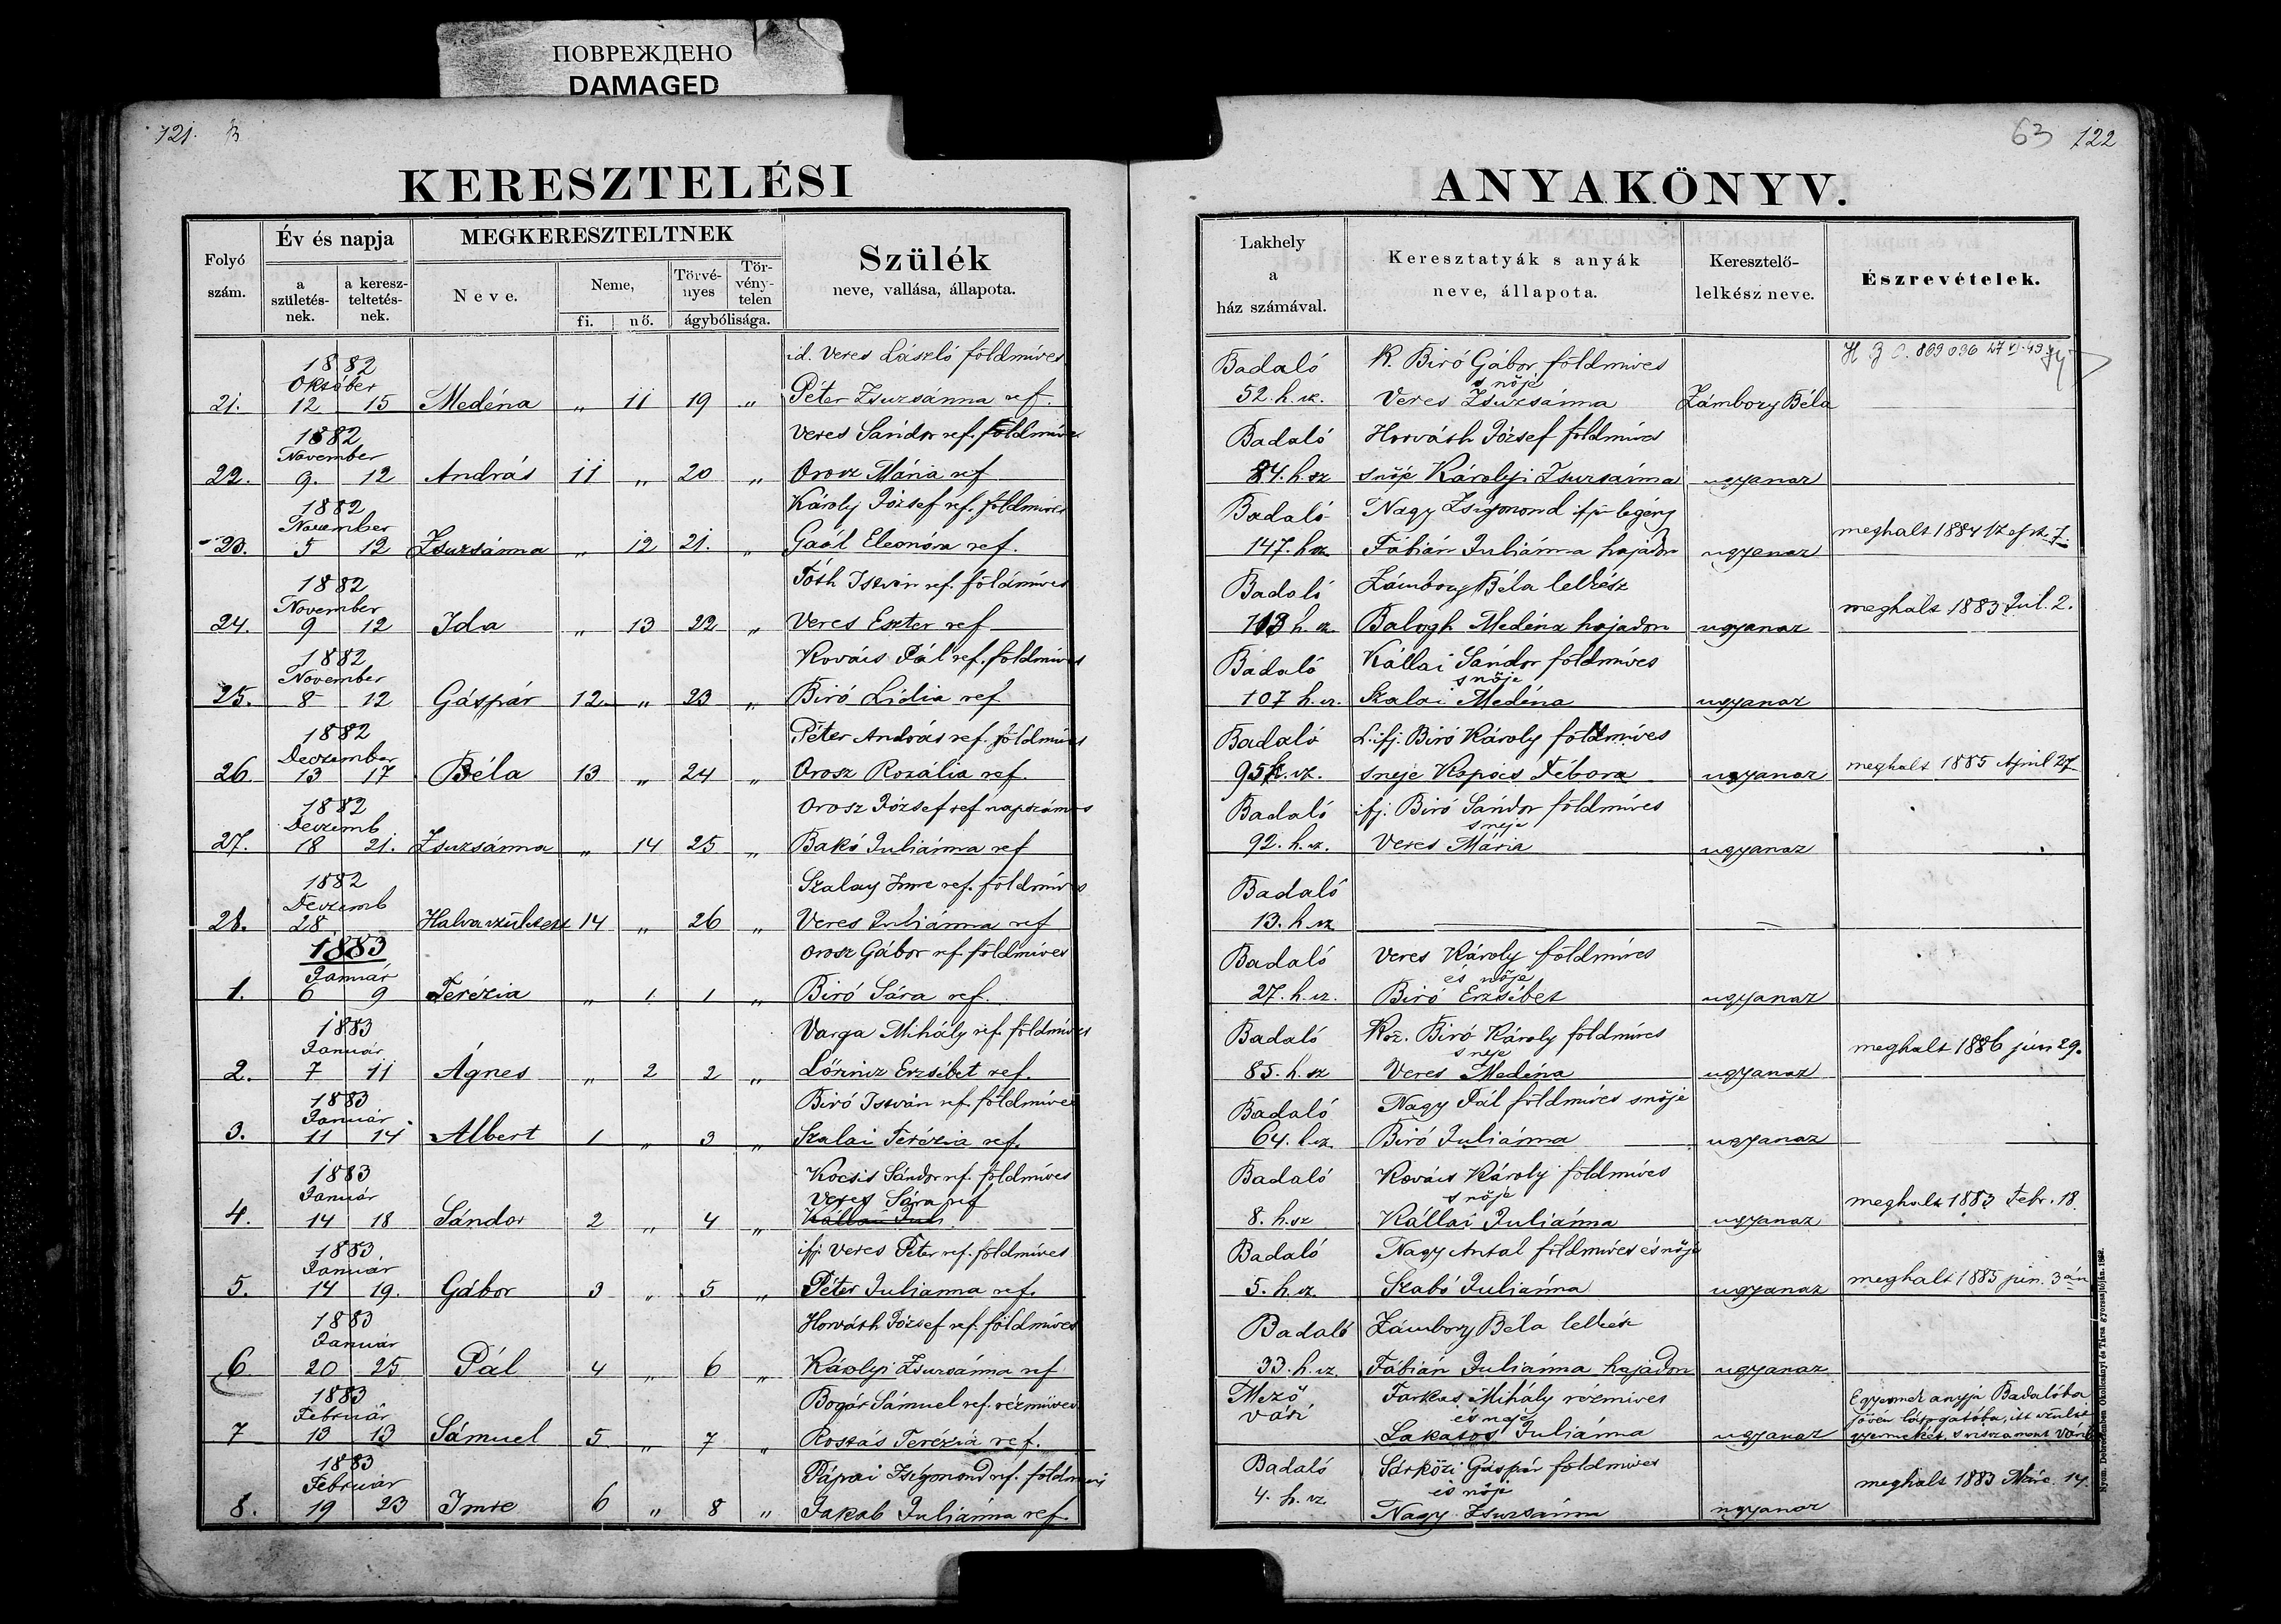 ПОВРЕЖДЕНО
DAMAGED
121.
KERESZTELÉSI
Folyó szám.
Év és napja
a születés-nek.
a keresz-teltetés-nek.
MEGKERESZTELTNEK
Neve.
Neme,
fi.
nő.
Törvé-nyes
Tör-vény-telen
ágybólisága.
Szülék
neve, vallása, állapota.
1882
Október
id. Veres László földmíves
21. 12 15 Medéna „ 11 19 „ Péter Zsuzsánna ref.
1882
November
Veres Sándor ref. földmíves
22. 9. 12 András 11 „ 20 „ Orosz Mária ref
1882
November
Károly József ref. földmíves
23. 5 12 Zsuzsánna „ 12 21. „ Gaál Eleonóra ref.
1882
November
Tóth István ref. földmíves
24. 9 12 Ida „ 13 22 „ Veres Eszter ref
1882
November
Kovács Pál ref. földmíves
25. 8 12 Gáspár 12 „ 23 „ Biró Lidia ref
1882
Deczember
Péter András ref. földmíves
26. 13 17 Béla 13 „ 24 „ Orosz Rozália ref.
1882
Deczemb
Orosz József ref napszámos
27. 18 21. Zsuzsánna „ 14 25 „ Bakó Juliánna ref
1882
Deczemb
Szalay Imre ref. földmíves
28. 28 Halva született 14 „ 26 „ Veres Juliánna ref
1883
Január
Orosz Gábor ref földmíves
1. 6 9 Terézia „ 1 1 „ Biró Sára ref.
1883
Január
Varga Mihály ref. földmíves
2. 7 11 Ágnes „ 2 2 „ Lőrincz Erzsébet ref.
1883
Január
Biró István ref földmíves
3. 11 14 Albert 1 „ 3 „ Szalai Terézia ref.
1883
Január
Kocsis Sándor ref. földmíves
Veres Sára ref
4. 14 18 Sándor 2 „ 4 „ Kállai Juli
1883.
Január
ifj. Veres Péter ref. földmíves
5. 14 19. Gábor 3 „ 5 „ Péter Julianna ref.
1883
Január
Horváth József ref. földmíves
6 20 25 Pál 4 „ 6 „ Károlyi Zsuzsánna ref
1883
Február
Bogár Sámuel ref. rézmíves
7 13 13 Sámuel 5 „ 7 „ Rostás Terézia ref.
1883
Február
Pápai Zsigmond ref. földmíves
8. 19 23 Imre 6 „ 8 „ Jakab Juliánna ref.
63 122
ANYAKÖNYV.
Lakhely
a
ház számával.
Keresztatyák s anyák
neve, állapota.
Keresztelő-
lelkész neve.
Észrevételek.
Badaló K. Biró Gábor földmíves
s nője
52. h. sz. Veres Zsuzsánna Zámbory Béla
Badaló Horváth József földmíves
84. h. sz s nője Károlyi Zsuzsánna ugyanaz
Badaló Nagy Zsigmond ifjú legény
147. h sz. Fábián Juliánna hajadon ugyanaz meghalt 1884
Badaló Zámbory Béla lelkész
113 h. sz. Balogh Medéna hajadon ugyanaz meghalt 1883 Jul. 2.
Badaló Kállai Sándor földmíves
s nője
107 h. sz. Szalai Medéna ugyanaz
Badaló L. ifj. Biró Károly földmíves
95 h. sz. s neje Kopócs Débora ugyanaz meghalt 1885 April 27
Badaló ifj. Biró Sándor földmíves
s neje
92. h. sz. Veres Mária ugyanaz
Badaló
13. h. sz
Badaló Veres Károly földmíves
és nője
27. h. sz. Biró Erzsébet ugyanaz
Badaló Köz. Biró Károly földmíves
s neje
85. h. sz Veres Medéna ugyanaz meghalt 1886 jún 29.
Badaló Nagy Pál földmíves s nője
64. h sz. Biró Juliánna ugyanaz
Badaló Kovács Károly földmíves
s nője
8. h. sz Kállai Juliánna ugyanaz meghalt 1883 Febr. 18.
Badaló Nagy Antal földmíves és nője
5. h. sz. Szabó Juliánna ugyanaz meghalt 1885 jun. 3 án
Badaló Zámbory Béla lelkész
33. h. sz Fábián Juliánna hajadon ugyanaz
Mező Farkas Mihály rézmíves
vári és neje
Lakatos Juliánna ugyanaz
E gyermek anyja Badalóba
jövén látogatóba, itt szülte
gyermekét, s visszament Vári
Badaló Sárközi Gáspár földmíves
és nője
4. h. sz. Nagy Zsuzsánna ugyanaz meghalt 1883 Márc. 14.